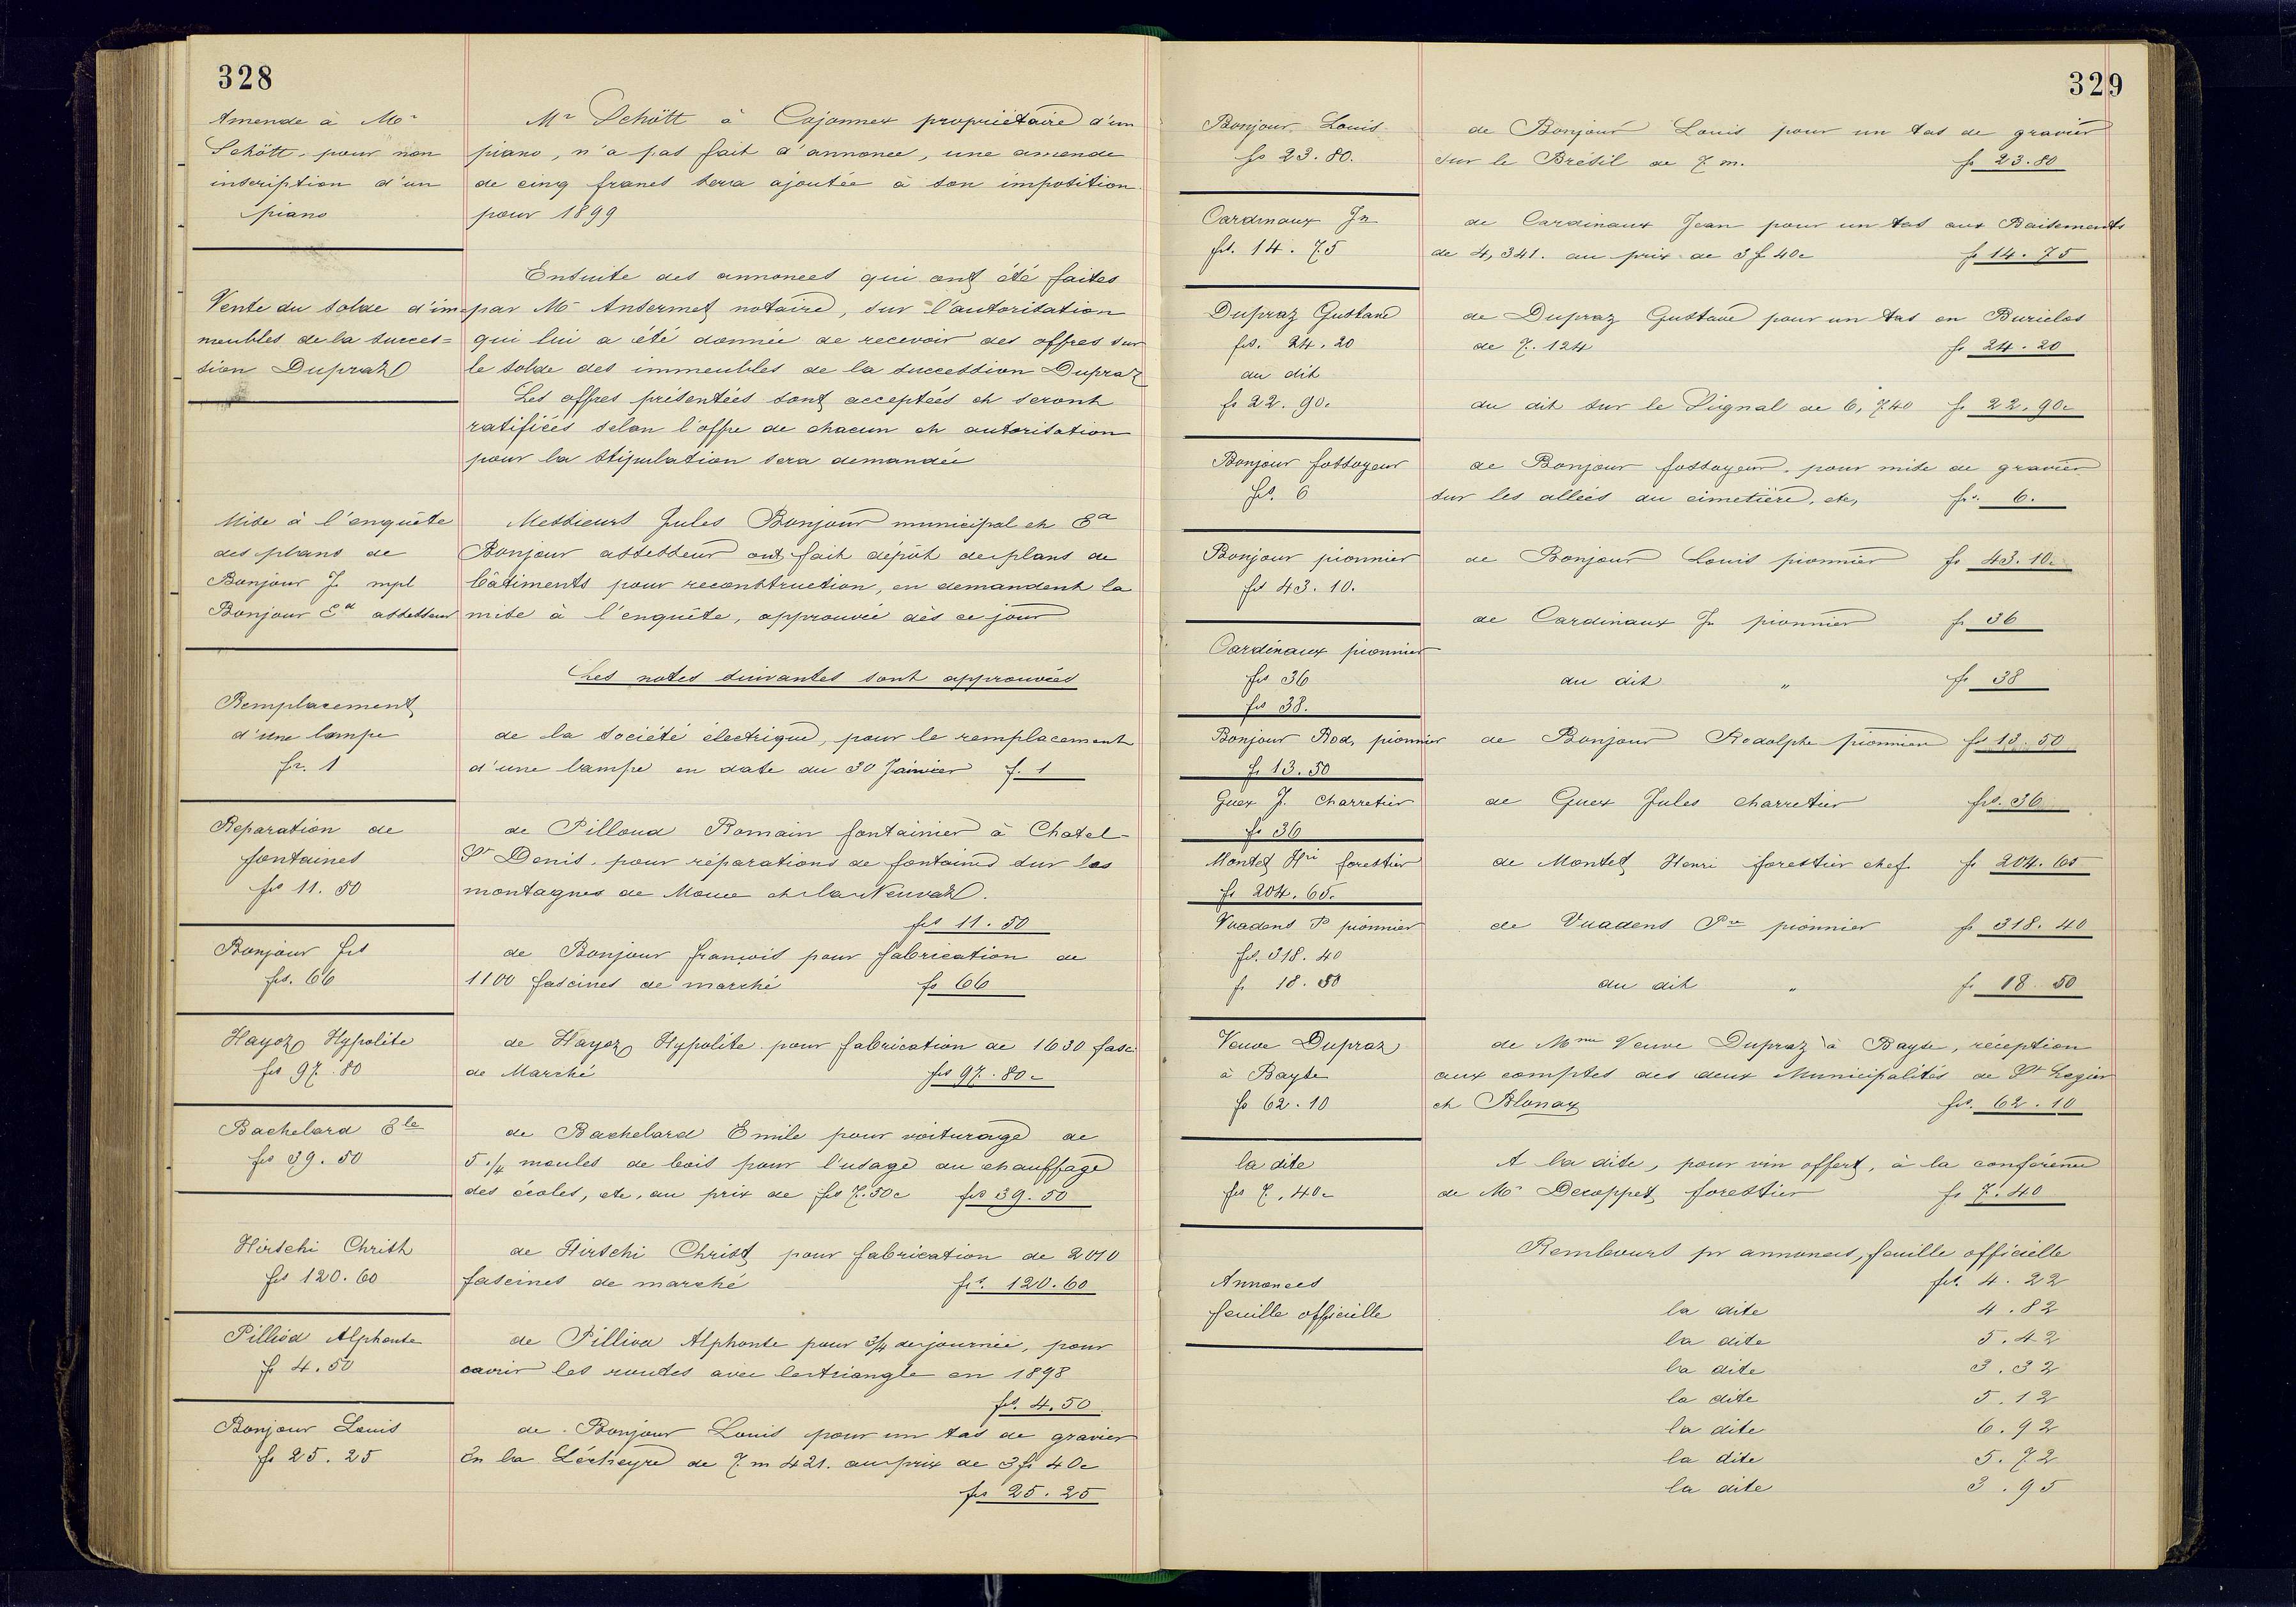 328
Amende à Mr
Schött, pour non
inscription d'un
piano
Mr Schött à Cojonnex propriétaire d'un
piano, n'a pas fait d'annonce, une amende
de cinq francs sera ajoutée à son imposition
pour 1899
Vente du solde d'im-
meubles de la succes=
sion Dupraz
Ensuite des annonces qui ont été faites
par Mr Ansermet notaire, sur l'autorisation
qui lui a été donnée de recevoir des offres sur
le solde des immeubles de la succession Dupraz
Les offres présentées sont acceptées et seront
ratifiées selon l'offre de chacun et autorisation
pour la stipulation sera demandée
Mise à l'enquête
des plans de
Bonjour J. mpl
Bonjour Ed assesseur
Messieurs Jules Bonjour municipal et Ed
Bonjour assesseur ont fait dépôt de plans de
bâtiments pour reconstruction, en demandent la
mise à l'enquête, approuvée dès ce jour
Les notes suivantes sont approuvées
Remplacement
d'une lampe
fr. 1
de la société électrique, pour le remplacement
d'une lampe en date du 30 Janvier f. 1
Reparation de
fontaines
frs 11. 50
de Pilloud Romain fontainier à Chatel-
St Denis, pour réparations de fontaines sur les
montagnes de et la Neuvaz.
frs 11. 50
Bonjour frs
frs. 66
de Bonjour françois pour fabrication de
1100 fascines de marché fr 66
Hayoz Hypolite
frs 97. 80
de Hayoz Hypolite pour fabrication de 1630 fasc
de Marché frs 97. 80c
Bachelard Ele
frs 39. 50
de Bachelard Emile pour voiturage de
5 1/4 moules de bois pour l'usage du chauffage
des écoles, etc, au prix de frs 7.50c frs 39. 50
Hirschi Christ
frs 120. 60
de Hirschi Christ pour fabrication de 2010
fascines de marché frs. 120. 60
Pilliod Alphonse
fr 4. 50
de Pilliod Alphonse pour 3/4 de journée, pour
ouvrir les routes avec le triangle en 1898
frs. 4. 50
Bonjour Louis
fr 25. 25
de Bonjour Louis pour un tas de gravier
En la Lécheyre de 7. m 421. au prix de 3 fr 40c
frs 25. 25
329
Bonjour Louis
fr 23. 80.
de Bonjour Louis pour un tas de gravier
sur le Brésil de 7 m. fr 23. 80
Cardinaux Jn
frs. 14. 75
de Cardinaux Jean pour un tas aux Baisements
de 4,341. au prix de 3 f 40c fr 14. 75
Dupraz Gustave
frs. 24. 20
au dit
fr 22. 90c
de Dupraz Gustave pour un tas en Burielos
de 7. 124 fr 24. 20
au dit sur le Signal de 6, 740 fr 22. 90c
Bonjour fossoyeur
frs. 6
de Bonjour fossoyeur, pour mise de gravier
sur les allées du cimetière, etc, frs. 6.
Bonjour pionnier
frs 43. 10.
de Bonjour Louis pionnier fr 43. 10c
Cardinaux pionnier
frs 36
frs 38.
de Cardinaux Jn pionnier fr 36
au dit " fr 38
Bonjour Rod, pionnier
fr 13. 50
de Bonjour Rodolphe pionnier frs 13. 50
Guex J. charretier
fr 36
de Guex Jules charretier frs. 36
Montet Hri forestier
fr 204. 65.
de Montet Henri forestier chef fr 204. 65
Vuadens P pionnier
frs. 318. 40
fr 18. 50
de Vuadens Pre pionnier fr 318. 40
au dit " fr 18. 50
Veuve Dupraz
à Bayse
fr 62. 10
de Mme Veuve Dupraz à Bayse, réception
aux comptes des deux Municipalités de St Legier
et Blonay frs. 62. 10
la dite
frs 7. 40c
A la dite, pour vin offert, à la conférence
de Mr Decoppet forestier fr 7. 40
Annonces
feuille officielle
Rembours pr annonces, feuille officielle
frs. 4. 22
la dite 4. 82
la dite 5. 42
la dite 3. 32
la dite 5. 12
la dite 6. 92
la dite 5. 72
la dite 3. 95